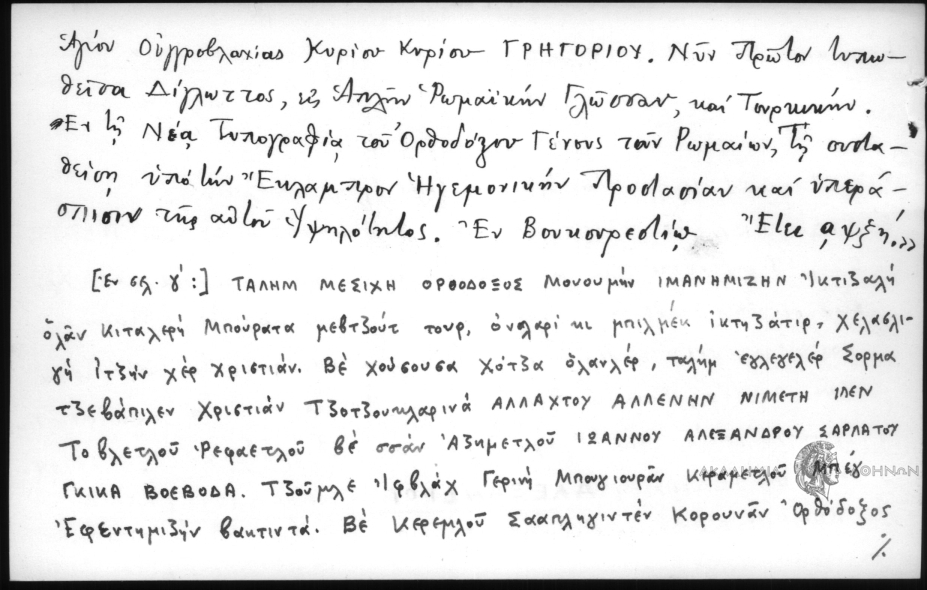 Ἁγίου Οὑγγροβλαχίας Κυρίου Κυρίου ΓΡΗΓΟΡΙΟΥ. Νῦν Πρῶτον τυπω-
θεῖσα Δίγλωττος, εἰς Ἁπλῆν Ῥωμαϊκήν Γλῶσσαν, καί Τουρκικήν.
Ἐν τῇ Νέᾳ Τυπογραφίᾳ τοῦ Ὀρθοδόξου Γένους τῶν Ῥωμαίων, Τῇ συστα-
θείσῃ ὑπό τήν Ἔκλαμπρον Ἡγεμονικήν Προστασίαν καί ὑπερά-
σπισιν τῆς αὐτοῦ Ὑψηλότητος. Ἐν Βουκουρεστίῳ. Ἔτει αψξη.»
[Ἐν σελ. γ΄:] ΤΑΛΗΜ ΜΕΣΙΧΗ ΟΡΘΟΔΟΞΟΣ Μουουμήν ΙΜΑΝΗΜΙΖΗΝ Ἰκτιζαλή
ὁλᾶν κιταλερή Μπούρατα μεβτζούτ τουρ, ὀνλαρί κι μπιλμέκ ἰκτηζάτιρ, χελασλι-
γή ἰτζήν χέρ χριστιάν. Βέ χούσουσα χότζα ὀλανλέρ, ταλήμ ἐγλεγελέρ Σορμα
τζεβάπιλεν Χριστιάν Τζοτζουκλαρινά ΑΛΛΑΧΤΟΥ ΑΛΛΕΝΗΝ ΝΙΜΕΤΗ ΙΛΕΝ
Τοβλετλοῦ Ῥεφαετλοῦ βέ σσάν Ἀζημετλοῦ ΙΩΑΝΝΟΥ ΑΛΕΞΑΝΔΡΟΥ ΣΑΡΛΑΤΟΥ
ΓΚΙΚΑ ΒΟΕΒΟΔΑ. Τζούμλε Ἰφβλάχ Γερινή Μπουγιουρᾶν Κεραμετλοῦ Μπέγ
Ἐφεντημιζήν βακτιντά. Βέ Κερεμλοῦ Σααπληγιντέν Κορουνᾶν Ὀρθόδοξος
%
ΑΚΑΔΗΜΙΑ ΑΘΗΝΩΝ